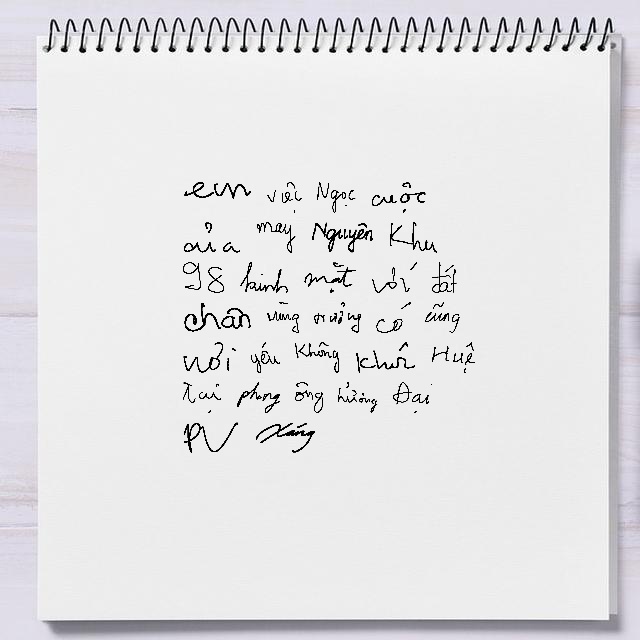 em việ Ngọc cuộc
của may Nguyên Khu
98 kinh mặt với đất
chân vùng trưởng có cũng
nơi yếu không khỏi Huệ
Tại phong ông hướng Đại
PV Xáng